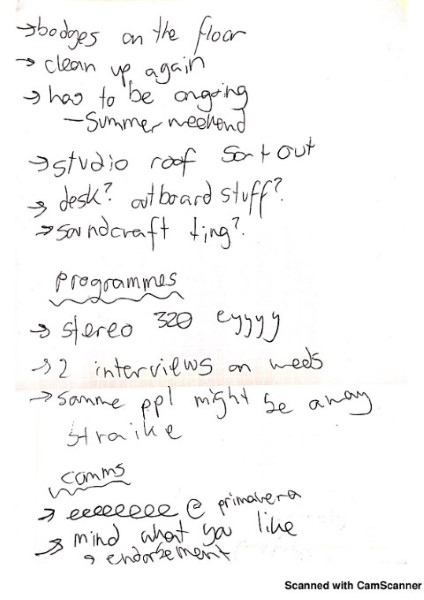 → badges on the floor
→ clean up again
→ has to be ongoing
– Summer weekend
→ studio roof sort out
→ desk? outboard stuff?
→ soundcraft ting?
Programmes
→ stereo 320 eyyyy
→ 2 interviews on weds
→ somme ppl might be away
straike
comms
→ eeeeeeee @ primavera
→ mind what you like
→ endorsement
Scanned with CamScanner